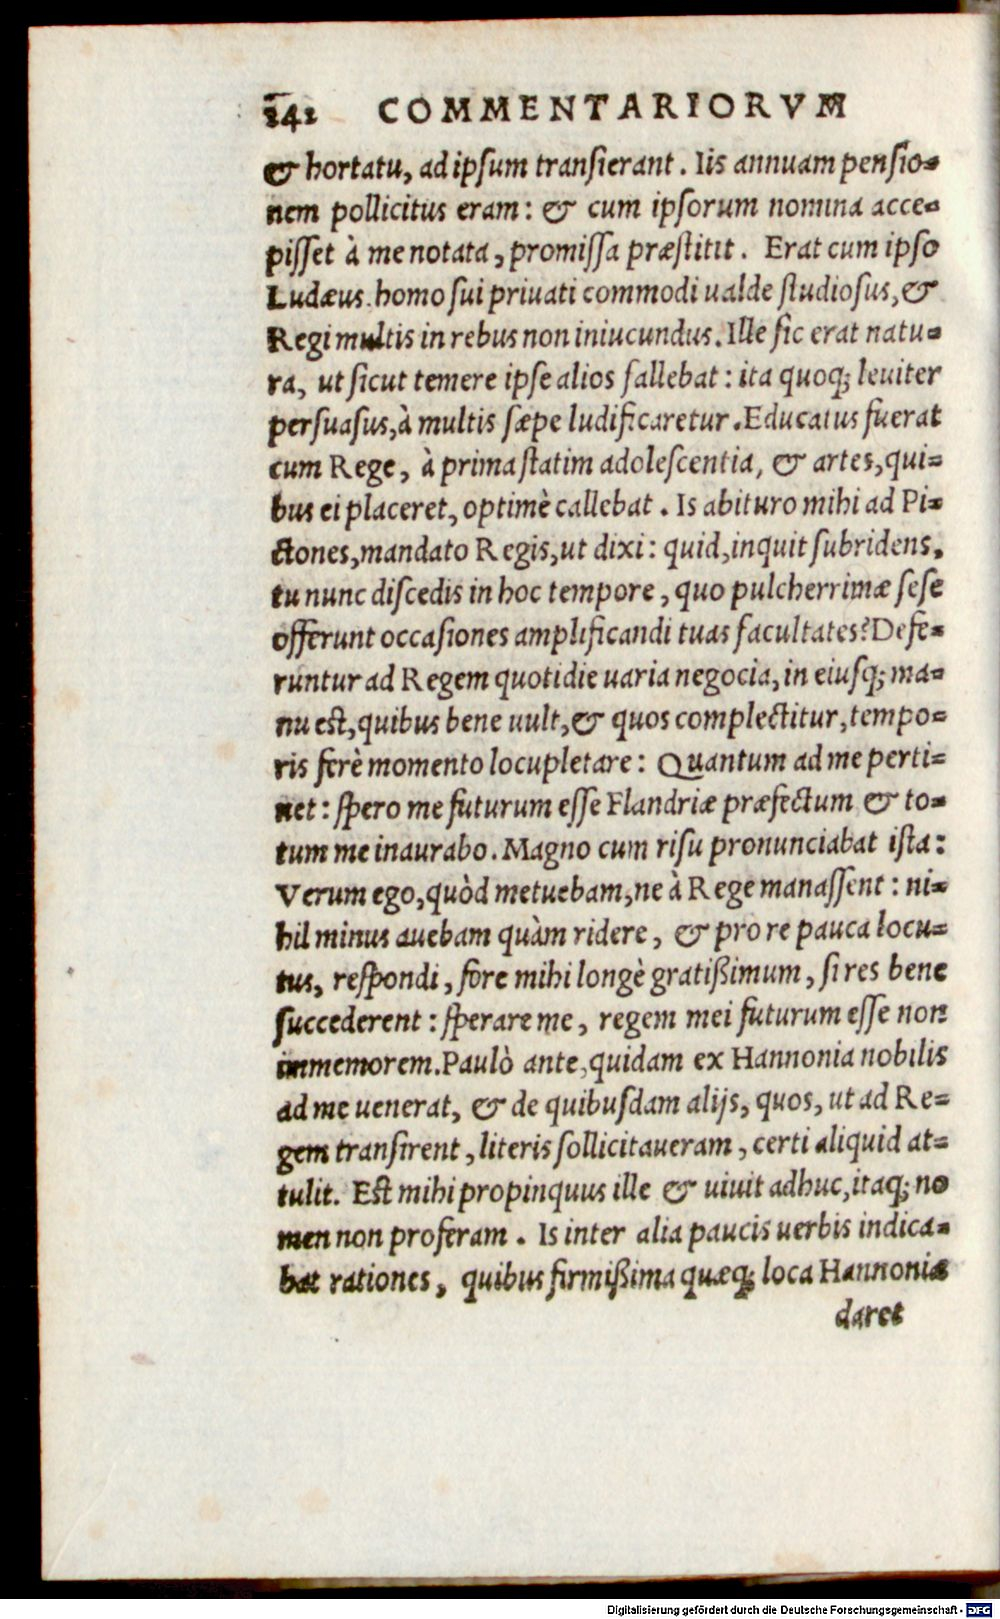 242 COMMENTARIORVM
& hortatu, ad ipsum transierant. Iis annuam pensio-
nem pollicitus eram: & cum ipsorum nomina acce-
pisset à me notata, promissa præstitit. Erat cum ipso
Ludæus. homo sui priuati commodi ualde studiosus, &
Regi multis in rebus non iniucundus. Ille sic erat natu-
ra, ut sicut temere ipse alios fallebat: ita quoq; leuiter
persuasus, à multis sæpe ludificaretur. Educatus fuerat
cum Rege, à prima statim adolescentia, & artes, qui-
bus ei placeret, optimè callebat. Is abituro mihi ad Pi-
ctones, mandato Regis, ut dixi: quid, inquit subridens,
tu nunc discedis in hoc tempore, quo pulcherrimæ sese
offerunt occasiones amplificandi tuas facultates? Defe-
runtur ad Regem quotidie uaria negocia, in eiusq; ma-
nu est, quibus bene uult, & quos complectitur, tempo-
ris ferè momento locupletare: Quantum ad me perti-
net: spero me futurum esse Flandriæ præfectum & to-
tum me inaurabo. Magno cum risu pronunciabat ista:
Verum ego, quòd metuebam, ne à Rege manassent: ni-
hil minus auebam quàm ridere, & pro re pauca locu-
tus, respondi, fore mihi longè gratißimum, si res bene
succederent: sperare me, regem mei futurum esse non
immemorem. Paulò ante, quidam ex Hannonia nobilis
ad me uenerat, & de quibusdam alijs, quos, ut ad Re-
gem transirent, literis sollicitaueram, certi aliquid at-
tulit. Est mihi propinquus ille & uiuit adhuc, itaq; no
men non proferam. Is inter alia paucis uerbis indica-
bat rationes, quibus firmißima quæq; loca Hannoniæ
daret
Digitalisierung gefördert durch die Deutsche Forschungsgemeinschaft - DFG